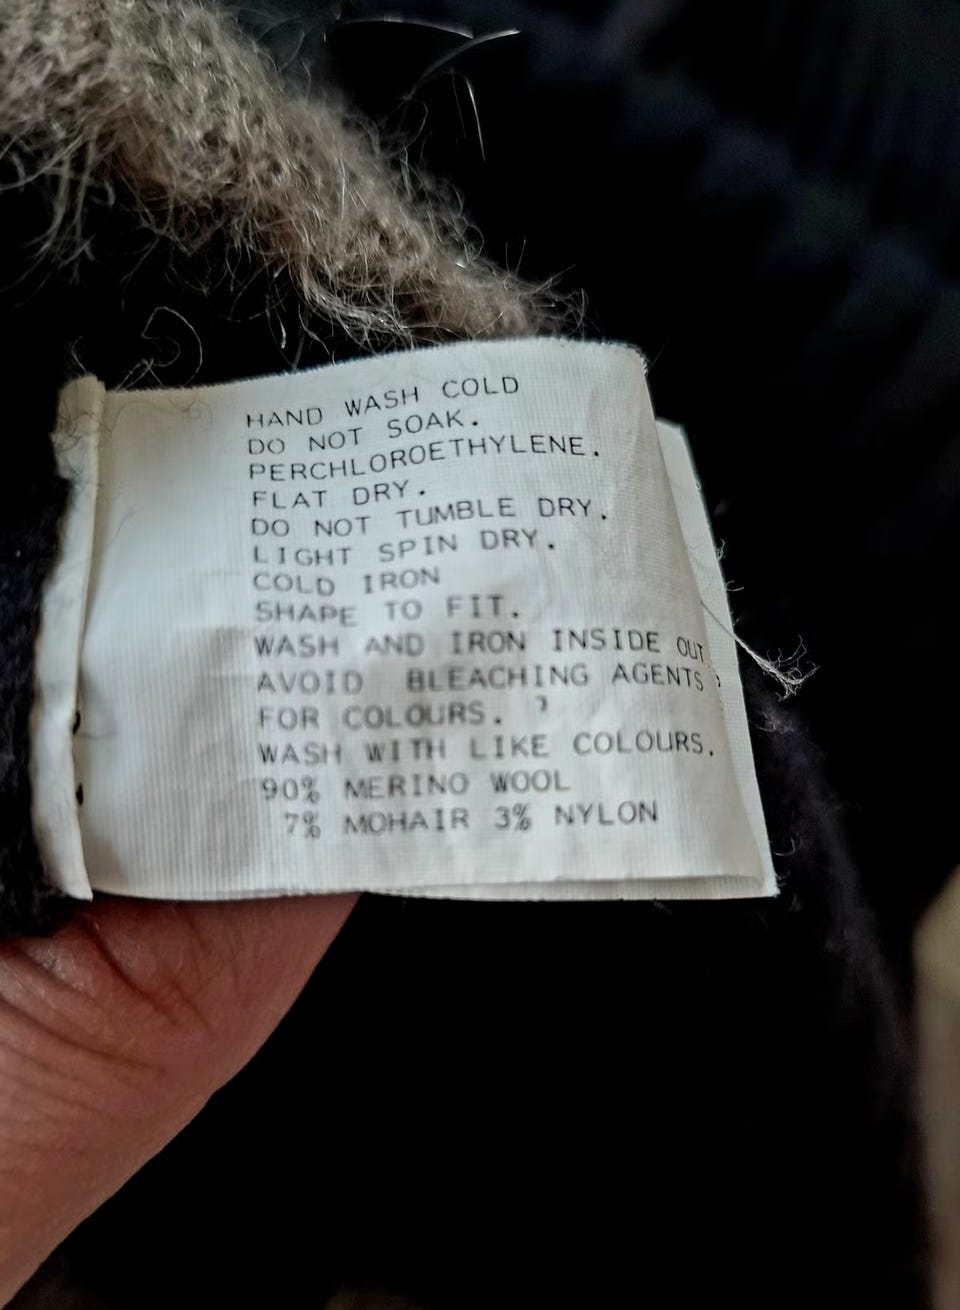 HAND WASH COLD
DO NOT SOAK.
PERCHLOROETHYLENE.
FLAT DRY.
DO NOT TUMBLE DRY.
LIGHT SPIN DRY.
COLD IRON
SHAPE TO FIT.
WASH AND IRON INSIDE OUT
AVOID BLEACHING AGENTS
FOR COLOURS.
WASH WITH LIKE COLOURS.
90% MERINO WOOL
7% MOHAIR 3% NYLON